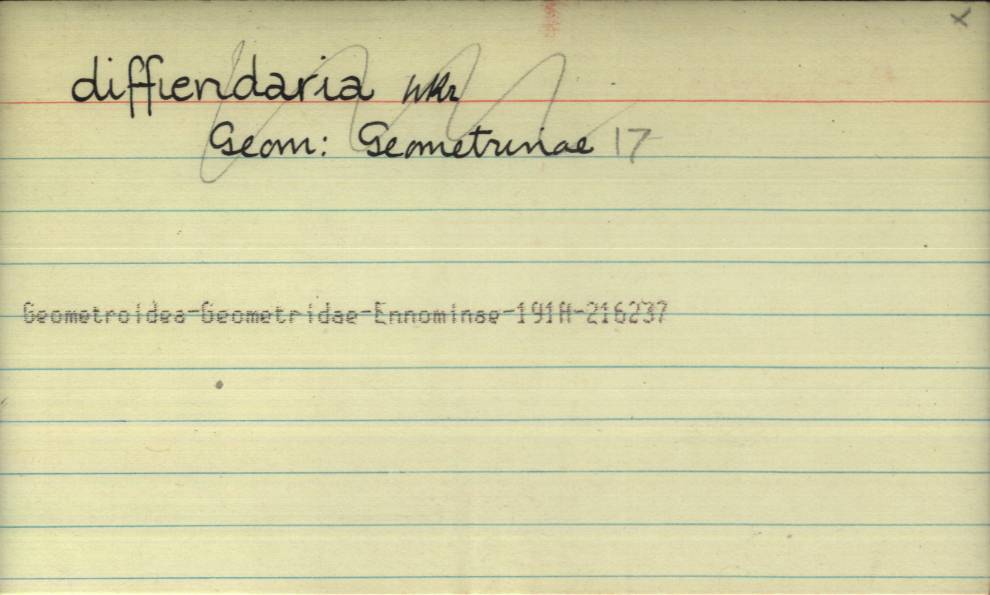 x
diffiendaria Wkr
Geom: Geometrinae 17
Geometroidea-Geometridae-Ennominae-191A-216237